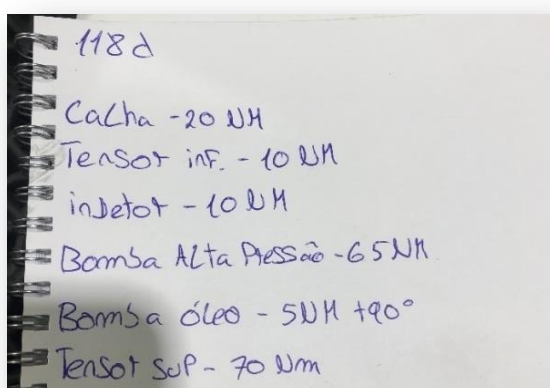 118d
Calha - 20 NM
Tensor inf. - 10 NM
injetor - 10 NM
Bomba Alta Pressão - 65 NM
Bomba óleo - 5NM +90°
Tensor sup - 70 Nm